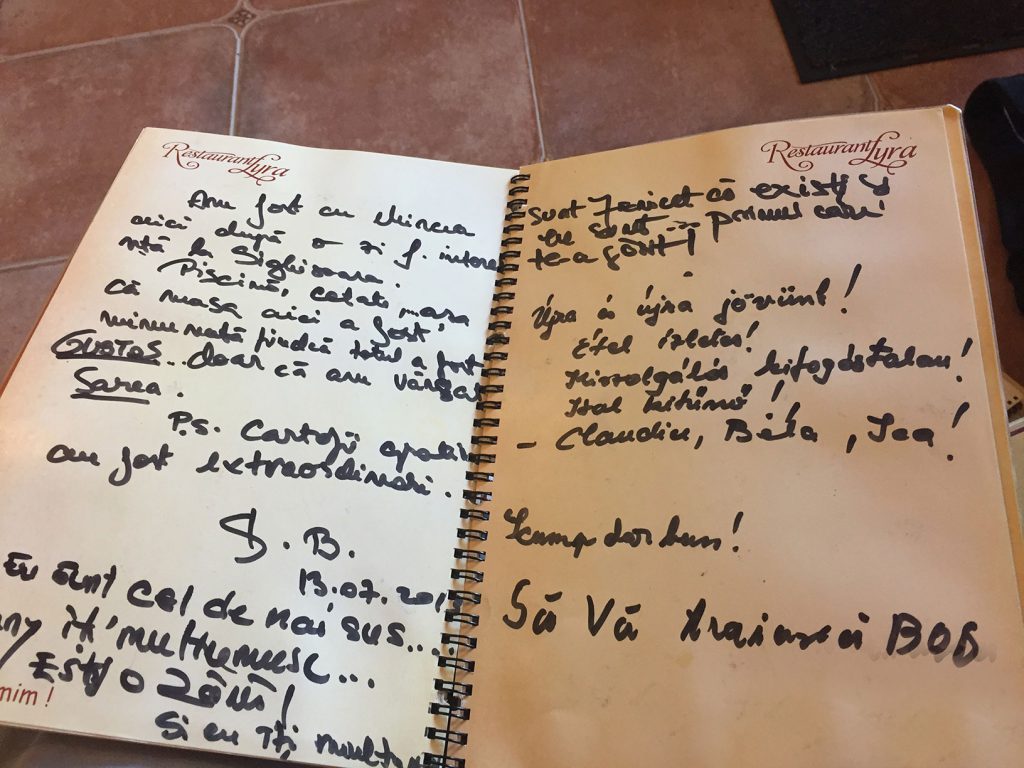 Restaurant Lyra
Am fost cu Mircea
aici după o zi f. intere
ntă la Sighisoara.
Piscină, cetate, masa
că masa aici a fost
minunată findcă totul a fost
GUSTOS.. doar că am vărsat
Sarea.
P.S. Cartofii
au fost extraordinari.
B.
13.07.201
Eu sînt cel de mai sus....
îți mulțumesc...
Ești o Zână!
mim!
Si eu îți
Restaurant Lyra
sunt fericit că existi și
primul care
te-a
Újra és újra jövünk!
Étel ízletes!
Kiszolgálás kifogástalan!
Ital kitűnő!
- Claudiu, Béla, Ica!
Scump dar bun!
Să Vă trăiască BOB